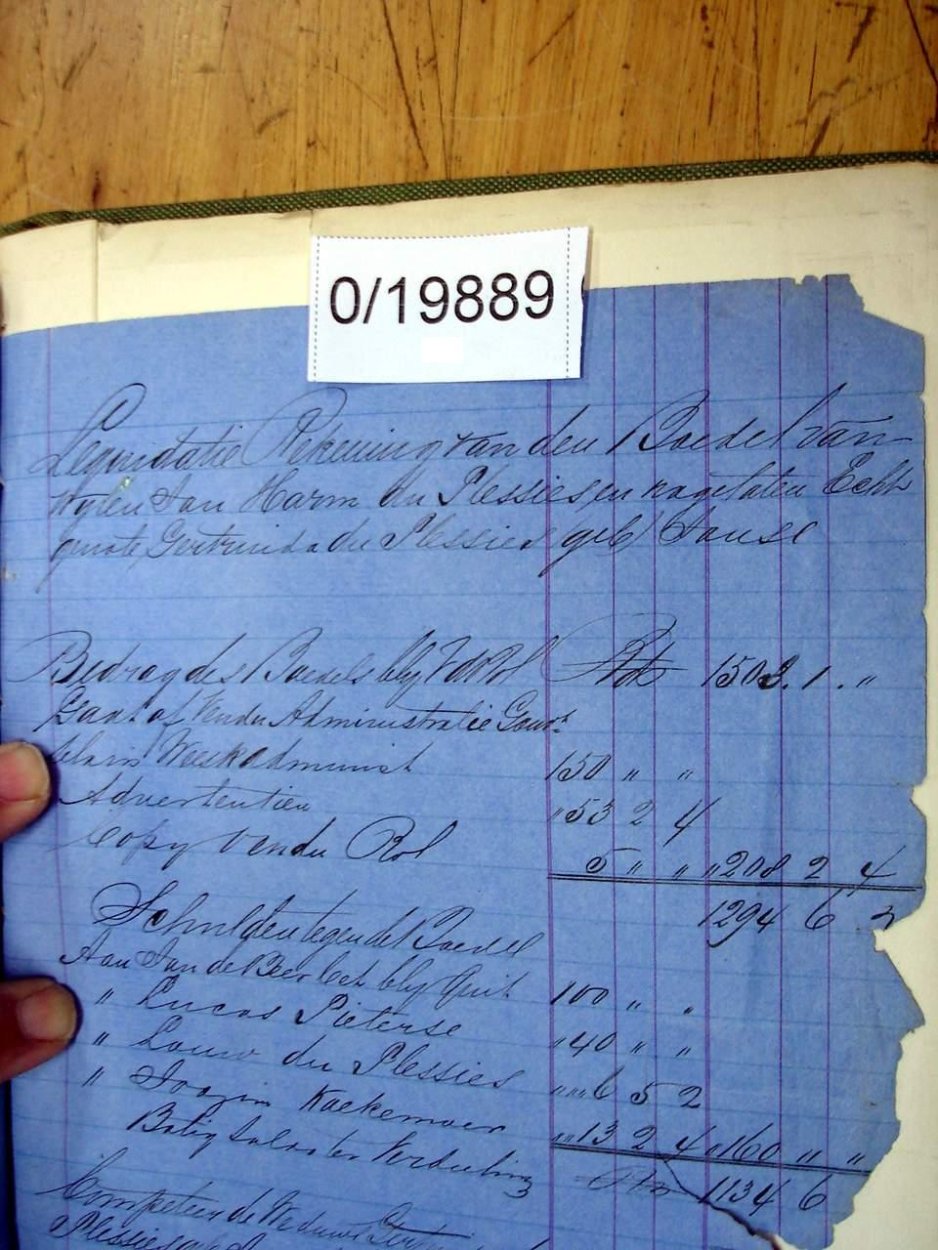 0/19889
Lequidatie Rekening van den Boedel van
Wylen Jan Harm du Plessies en nagelaten Echt
genote Gertruida du Plessies (geb) Janse
Bedrag des Boedels bly V d Rol Rds 1503. 1. "
Laat af Vendu Administratie Gouvt
Weesk administ 150 " "
Advertentien " 53 2 4
Copy Vendu Rol 5 " " " 208 2 4
1294 6
Schulden tegen de Boedel
Aan Jan de Beer bly Quit 100 " "
" Lucas Pieterse " 40 " "
" Louw du Plessies " " " 6 5 2
" Koekemoer " " 13 2 4 " 160 " "
Batig Saldo ter Verdeeling Rds 1134 6
Competeer de Weduwe
Plessies geb